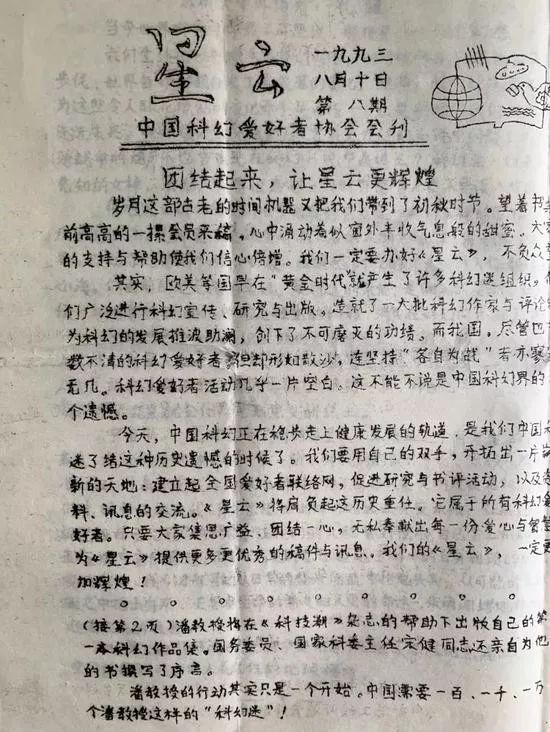 星云
一九九三
八月十日
第八期
中国科幻爱好者协会会刊
团结起来，让星云更辉煌
岁月这部古老的时间机器又把我们带到了初秋时节。望着书
前高高的一摞会员来稿，心中涌动着似窗外丰收气息般的甜蜜。大家
的支持与帮助使我们信心倍增。我们一定要办好《星云》，不负众
其实，欧美等国早在"黄金时代"就产生了许多科幻迷组织，
们广泛进行科幻宣传、研究与出版。造就了一大批科幻作家与评论
为科幻的发展推波助澜，创下了不可磨灭的功绩。而我国，尽管也
数不清的科幻爱好者，但却形如散沙，连坚持"各自为战"者亦寥
无几。科幻爱好者活动几乎一片空白。这不能不说是中国科幻界的
个遗憾。
今天，中国科幻正在稳步走上健康发展的轨道，是我们中国科
迷了结这种历史遗憾的时候了。我们要用自己的双手，开拓出一片
新的天地：建立起全国爱好者联络网，促进研究与书评活动，以及
料、讯息的交流。《星云》将肩负起这历史重任。它属于所有科幻
好者。只要大家集思广益、团结一心，无私奉献出每一份爱心与智
为《星云》提供更多更优秀的稿件与讯息。我们的《星云》，一定
加辉煌！
(接第2页)潘教授将在《科技潮》杂志的帮助下出版自己的第
一本科幻作品集。国务委员、国家科委主任宋健同志还亲自为他
的书撰写了序言。
潘教授的行动其实只是一个开始。中国需要一百、一千、一万
个潘教授这样的"科幻迷"！